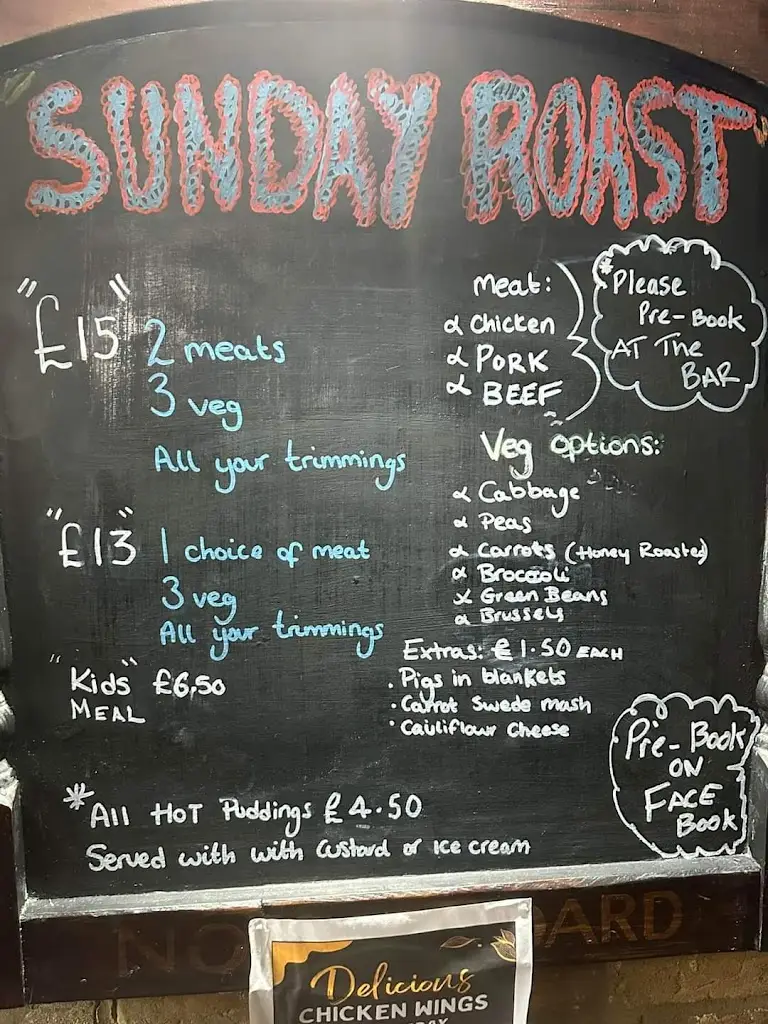 SUNDAY ROAST
"£15" 2 meats
3 veg
All your trimmings
"£13" 1 choice of meat
3 veg
All your trimmings
"Kids" £6.50
MEAL
Meat:
Chicken
PORK
BEEF
*Please
Pre-Book
AT The
BAR
Veg options:
Cabbage
Peas
Carrots (Honey Roasted)
Broccoli
Green Beans
Brussels
Extras: £1.50 EACH
· Pigs in blankets
· Carrot Swede mash
· Cauliflour Cheese
Pre-Book
ON
FACE
Book
*All HOT Puddings £4.50
Served with with Custard or Ice cream
Delicious
CHICKEN WINGS